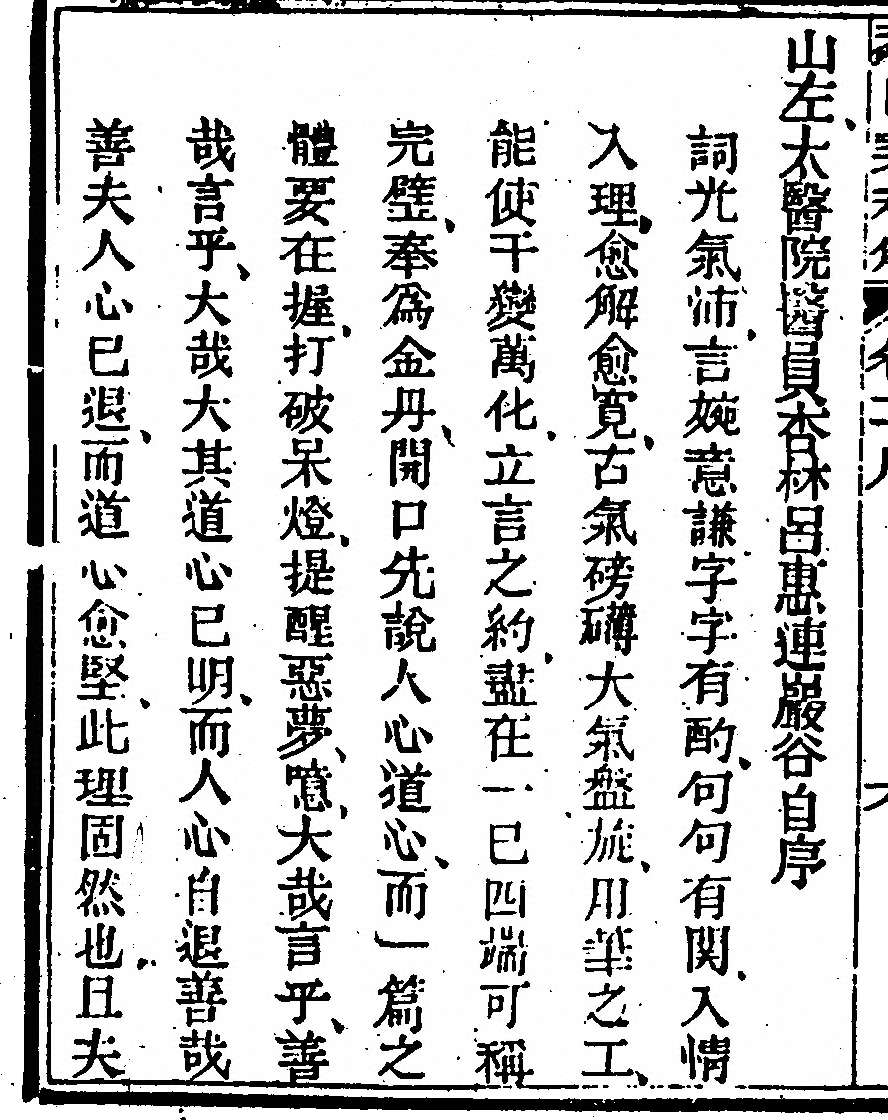 山左太醫院醫員杏林呂惠連巖谷自序
詞光氣沛、言婉意謙字字有酌、句句有関、入情
入理、愈解愈寬、古氣磅礴大氣盤旋、用筆之工、
能使千變萬化、立言之約、盡在一已四端可稱
完璧、奉爲金丹、開口先說人心道心、而一篇之
體要在握、打破呆燈、提醒惡夢、噫、大哉言乎、善
哉言乎、大哉大其道心已明、而人心自退善哉
善夫人心已退、而道心愈堅、此理固然也、且夫